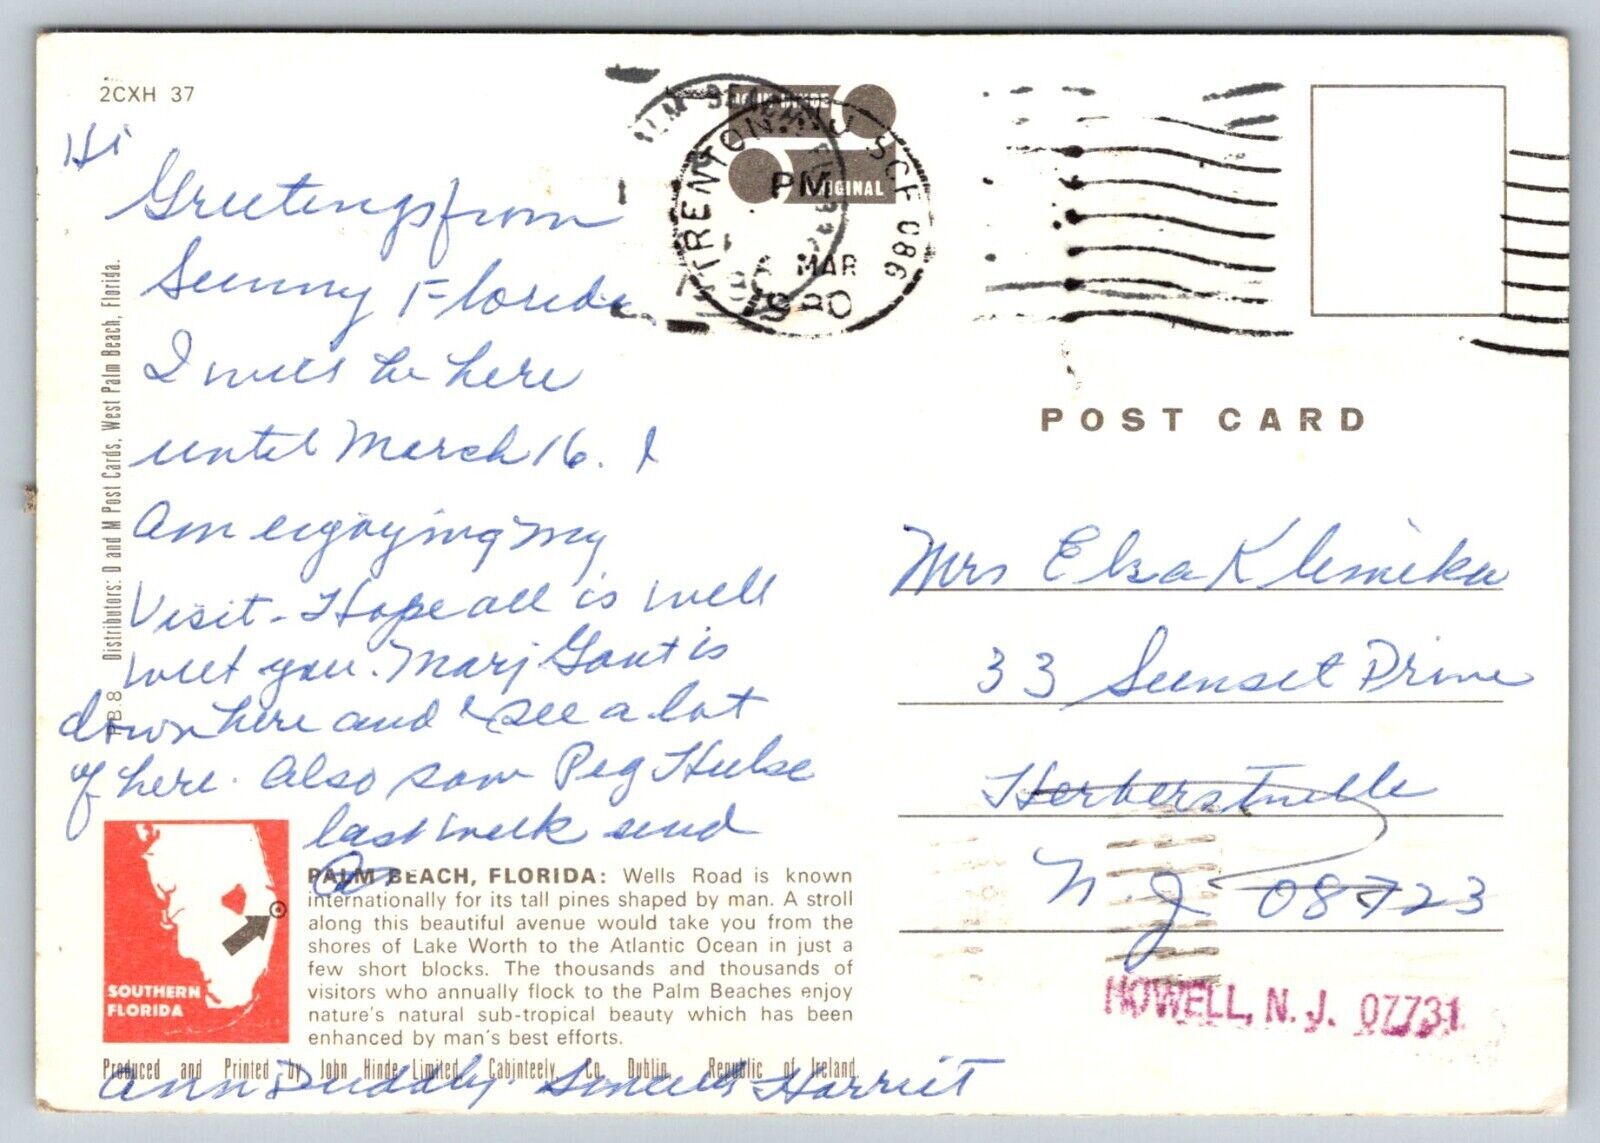 2CXH 37
Hi
Greetings from
Sunny Florida
I will be here
until March 16. I
am enjoying my
Visit. Hope all is well
with you. Marj Gant is
down here and I see a lot
of here. Also saw Peg Hulse
last week and
Ann Duddly. Sincerely Harriet
P.B.8 Distributors: D and M Post Cards, West Palm Beach, Florida.
SOUTHERN
FLORIDA
PALM BEACH, FLORIDA: Wells Road is known
internationally for its tall pines shaped by man. A stroll
along this beautiful avenue would take you from the
shores of Lake Worth to the Atlantic Ocean in just a
few short blocks. The thousands and thousands of
visitors who annually flock to the Palm Beaches enjoy
nature's natural sub-tropical beauty which has been
enhanced by man's best efforts.
Produced and Printed by John Hinde Limited, Cabinteely, Co. Dublin, Republic of Ireland.
JOHN HINDE
ORIGINAL
PALM BEACH
TRENTON, NJ SCF 086
PM
MAR
1980
POST CARD
Mrs Elsa Klemika
33 Sunset Drive
Herbertsville
N.J. 08723
HOWELL, N.J. 07731